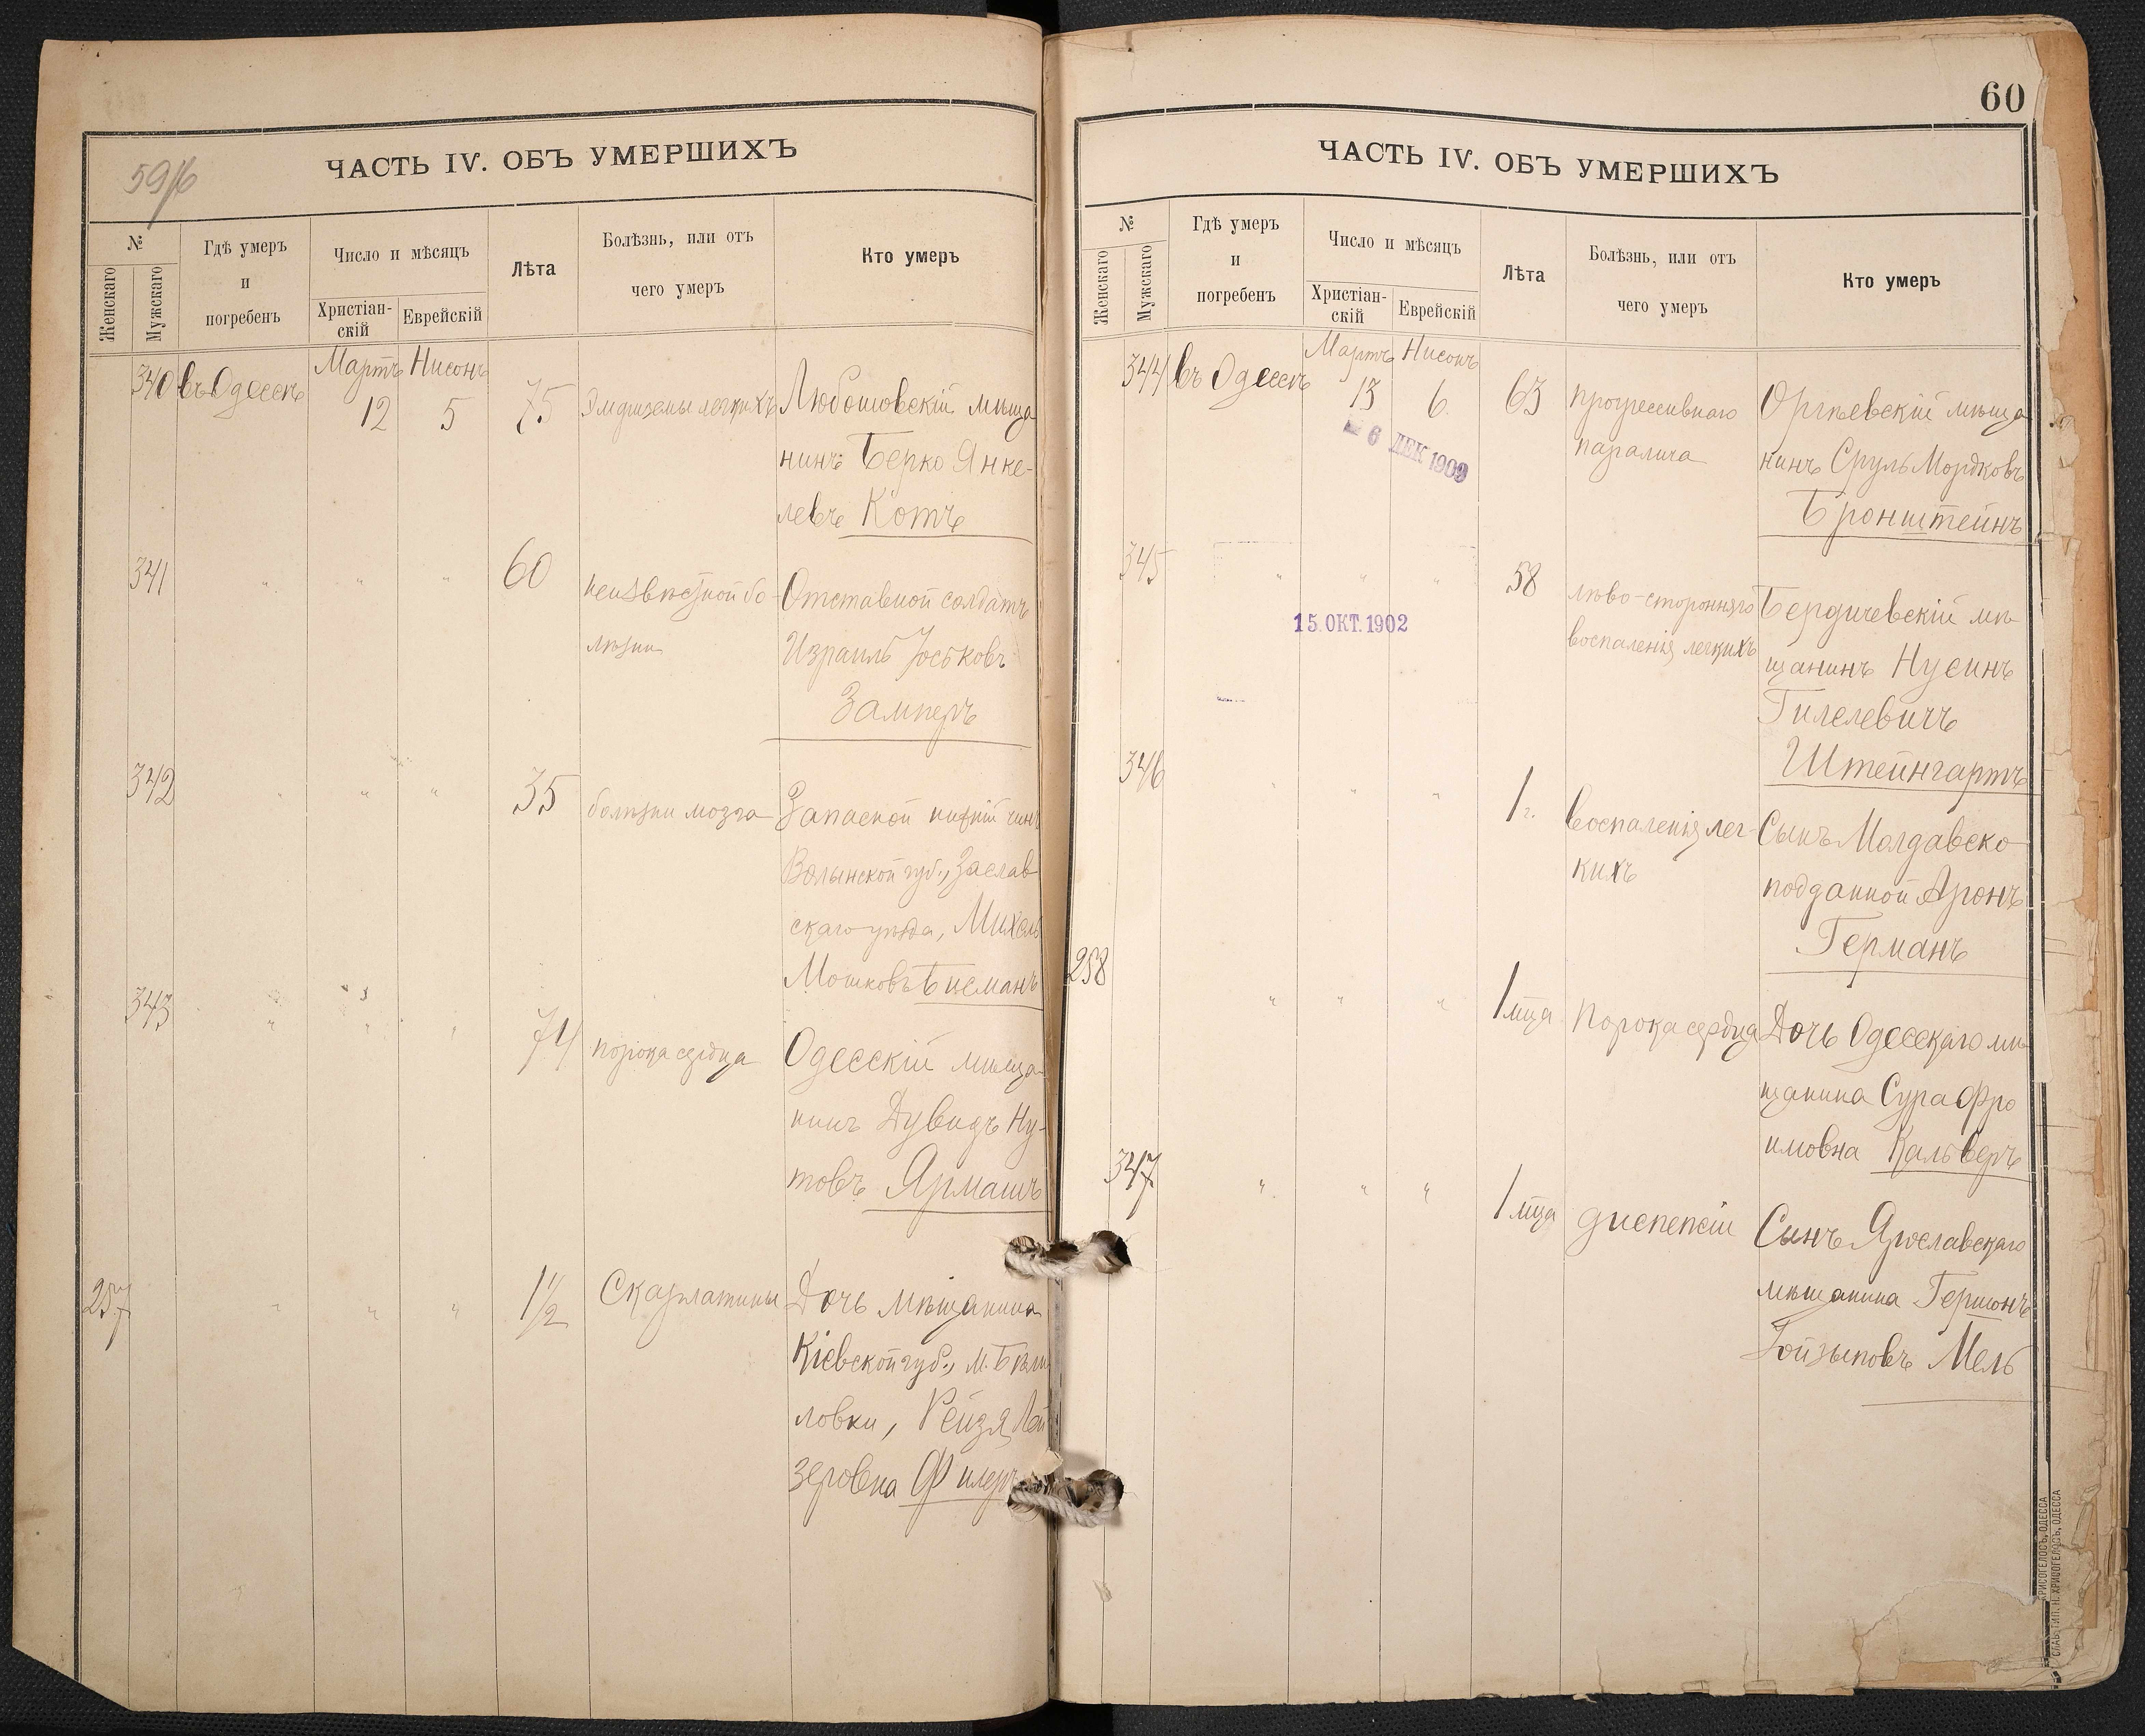 59/6
ЧАСТЬ IV. ОБЪ УМЕРШИХЪ
№
Женскаго
Мужскаго
Гдѣ умеръ
и
погребенъ
Число и мѣсяцъ
Христіан-
скій
Еврейскій
Лѣта
Болѣзнь, или отъ
чего умеръ
Кто умеръ
Мартъ Нисонъ
340 въ Одессѣ 12 5 75 Эмфиземы легкихъ Любошовскій мѣща
нинъ Берко Янке-
левъ Котъ
341 " " " 60 неизвѣстной бо- Отставной солдатъ
лѣзни Израиль Іоськовъ
Замперъ
342 " " " 35 болѣзни мозга Запасной нижній чинъ
Волынской губ., Заслав
скаго уѣзда, Михель
Мошковъ Бисманъ
343 " " " 74 порока сердца Одесскій мѣща-
нинъ Дувидъ Ну-
товъ Ярмашъ
257 " " " 1 1/2 Скарлатины Дочь мѣщанина
Кіевской губ., м. Бѣли
ловки, Рейзя Лей
зеровна Филеръ
60
ЧАСТЬ IV. ОБЪ УМЕРШИХЪ
№
Женскаго
Мужскаго
Гдѣ умеръ
и
погребенъ
Число и мѣсяцъ
Христіан-
скій
Еврейскій
Лѣта
Болѣзнь, или отъ
чего умеръ
Кто умеръ
Мартъ Нисонъ
344 въ Одессѣ 13 6 63 прогрессивнаго Оргѣевскій мѣща
6 ДЕК 1909
паралича нинъ Сруль Мордковъ
Бронштейнъ
345 " " " 58 лѣво-сторонняго Бердичевскій мѣ
15.ОКТ.1902
воспаленія легкихъ щанинъ Нусинъ
Гилелевичъ
Штейнгартъ
346 " " " 1 г. воспаленія лег- Сынъ Молдавско
кихъ подданной Аронъ
Германъ
258 " " " 1 мца Порока сердца Дочь Одесскаго мѣ
щанина Сура Фро
имовна Кальверъ
347 " " " 1 мца диспепсіи Сынъ Ярославскаго
мѣщанина Гершонъ
Гойзыповъ Мель
СЛАВ. ТИП. Н. ХРИСОГЕЛОСЪ, ОДЕССА